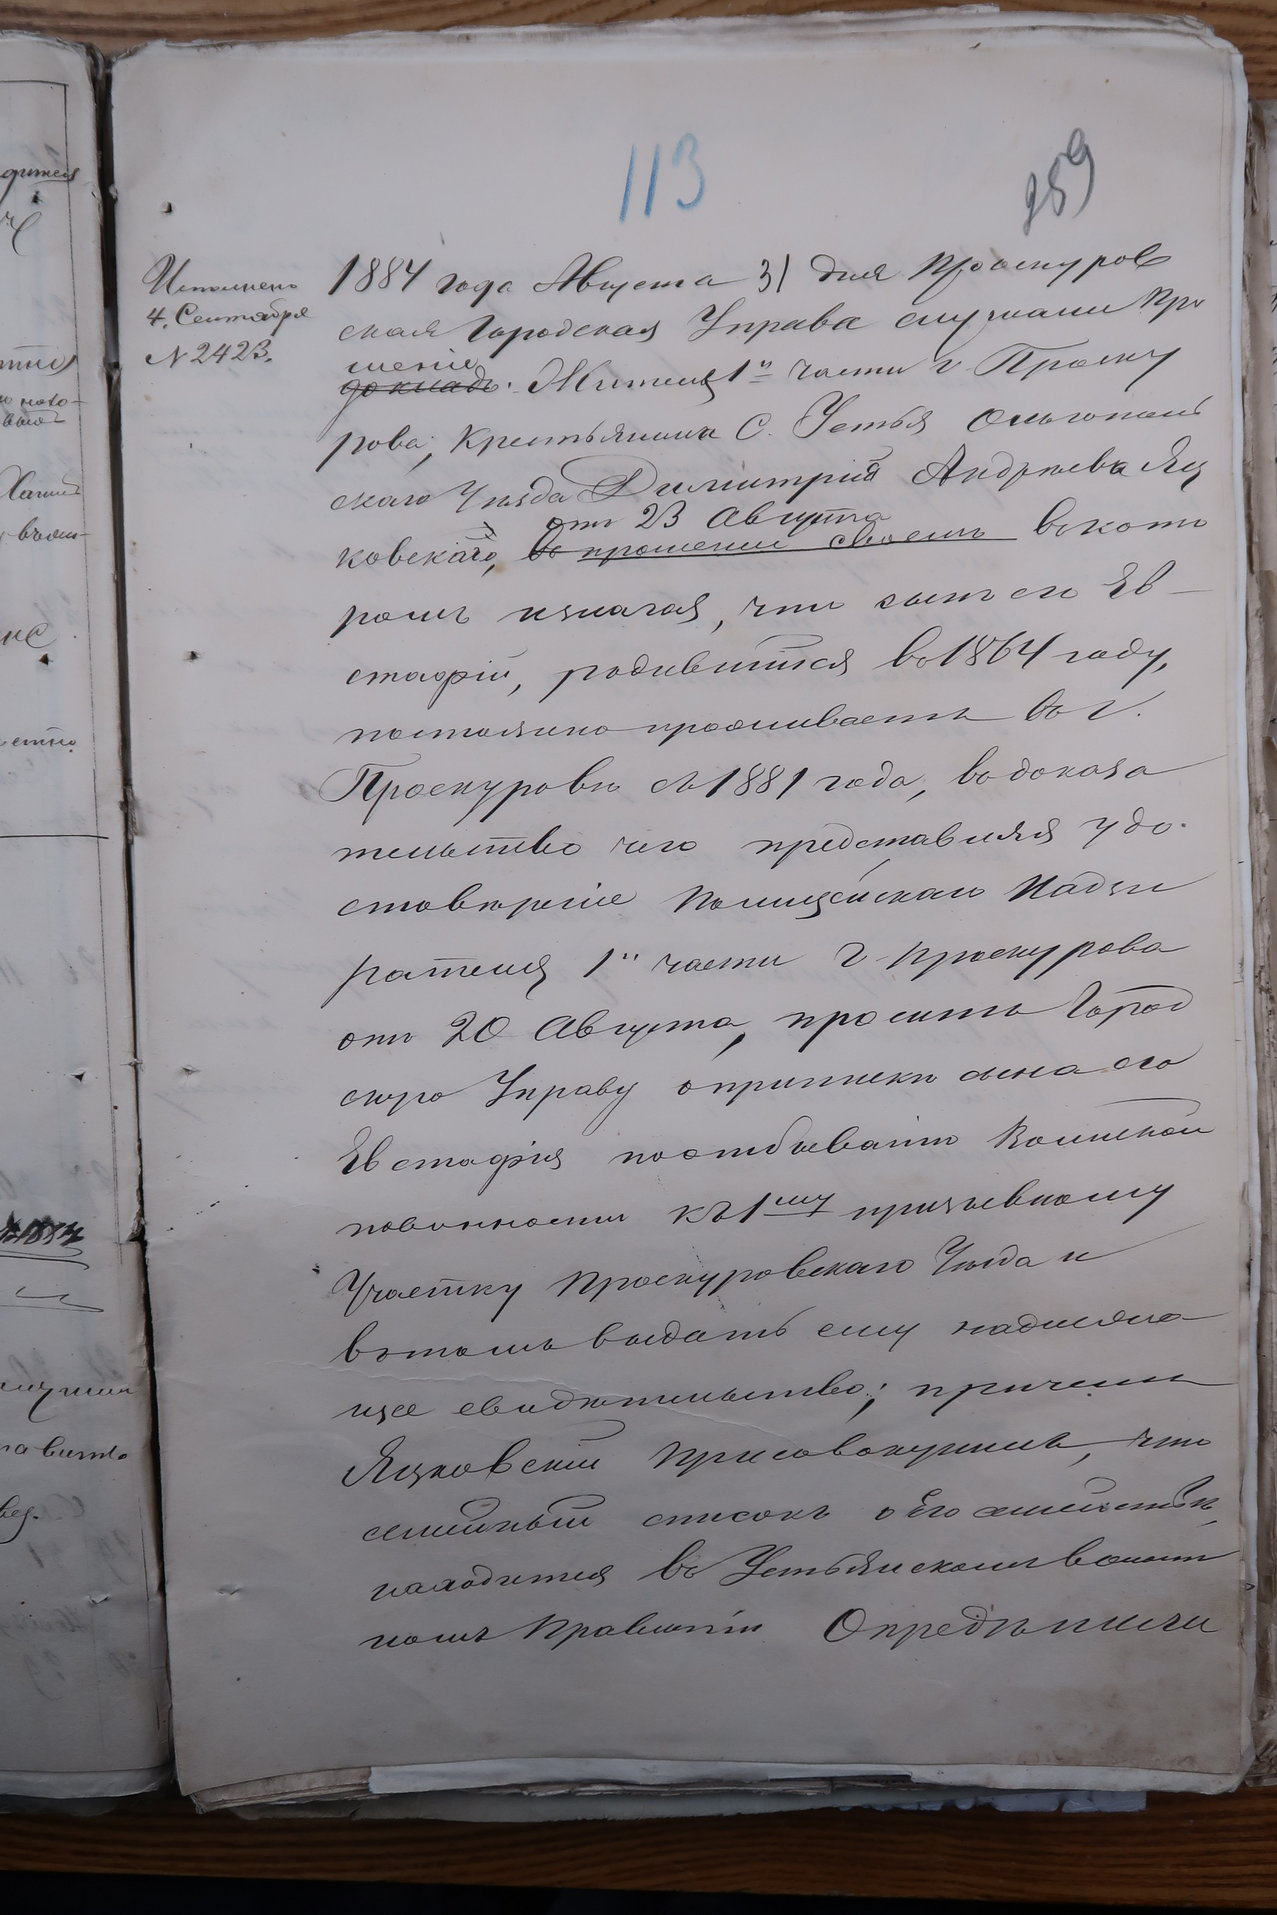 113
259
Исполнено
4. Сентября
№ 2423.
1884 года Августа 31 дня Проскуров
ская Городская Управа слушали про
шеніе
докладъ: Жителя 1й части г. Проску
рова, крестьянина С. Устья Ольгополь
скаго Уѣзда Димитрія Андреева Яц
ковскаго, отъ 23 Августа
въ прошеніи своемъ въ кото
ромъ излагая, что сынъ его Ев-
стафій, родившійся въ 1864 году,
постоянно проживаетъ въ г.
Проскуровѣ съ 1881 года, въ доказа
тельство чего представляя удо-
стовѣреніе Полицейскаго Надзи
рателя 1й части г. Проскурова
отъ 20 Августа, проситъ Город
скую Управу о припискѣ сына его
Евстафія по отбыванію Воинской
повинности къ 1му призывному
Участку Проскуровскаго Уѣзда и
въ томъ выдать ему надлежа
щее свидѣтельство; при чемъ
Яцковскій присовокупилъ, что
семейный списокъ о его семействѣ,
находится въ Устьянскомъ волост
номъ Правленіи Опредѣлили